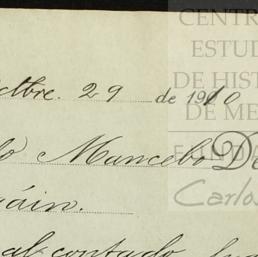 CENTR
ESTUD
DE HIST
DE ME
FUND
Carlos
ctbre. 29 de 1910
lo Mancebo De
áin.
al contado